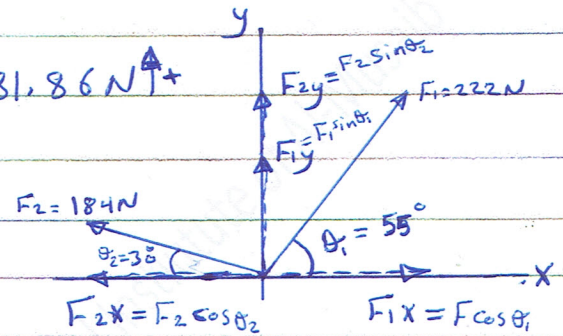 y
31.86 N +
F2y = F2 sinθ2
F1 = 222 N
F1y = F1 sinθ1
F2 = 184 N
θ2 = 30°
θ1 = 55°
x
F2x = F2 cosθ2
F1x = F cosθ1